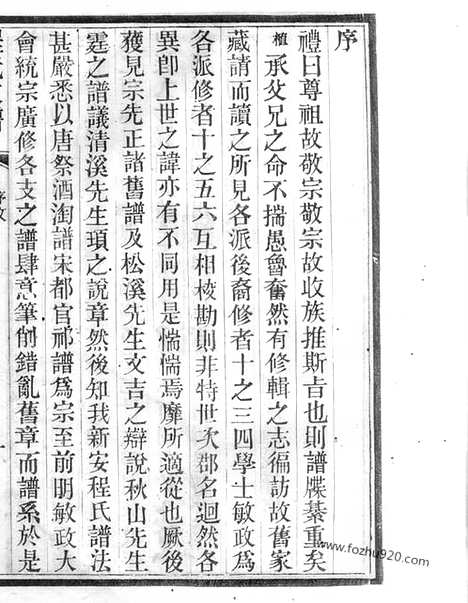 序
禮曰尊祖故敬宗敬宗故收族推斯旨也則譜牒綦重矣
植承父兄之命不揣愚魯奮然有修輯之志徧訪故舊家
藏請而讀之所見各派後裔修者十之三四學士敏政爲
各派修者十之五六互相校勘則非特世次郡名迥然各
異卽上世之諱亦有不同用是惴惴焉靡所適從也厥後
獲見宗先正諸舊譜及松溪先生文吉之辯說秋山先生
霆之譜議清溪先生頊之說章然後知我新安程氏譜法
甚嚴悉以唐祭酒淘譜宋都官祁譜爲宗至前明敏政大
會統宗廣修各支之譜肆意筆削錯亂舊章而譜系於是
序
一
www.fozhu920.com